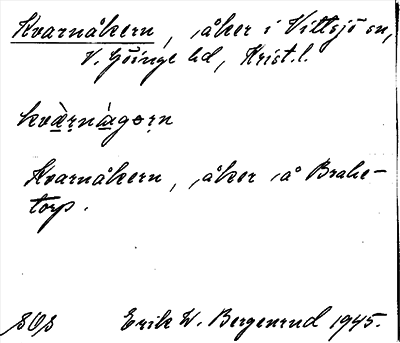 Kvarnåkern, åker i Vittsjö sn,
V. Göinge hd, Krist. l.
kvὰ̀rṇàgọrṇ
Kvarnåkern, åker å Brahe-
torp.
SOS Erik W. Bergenrud 1945.